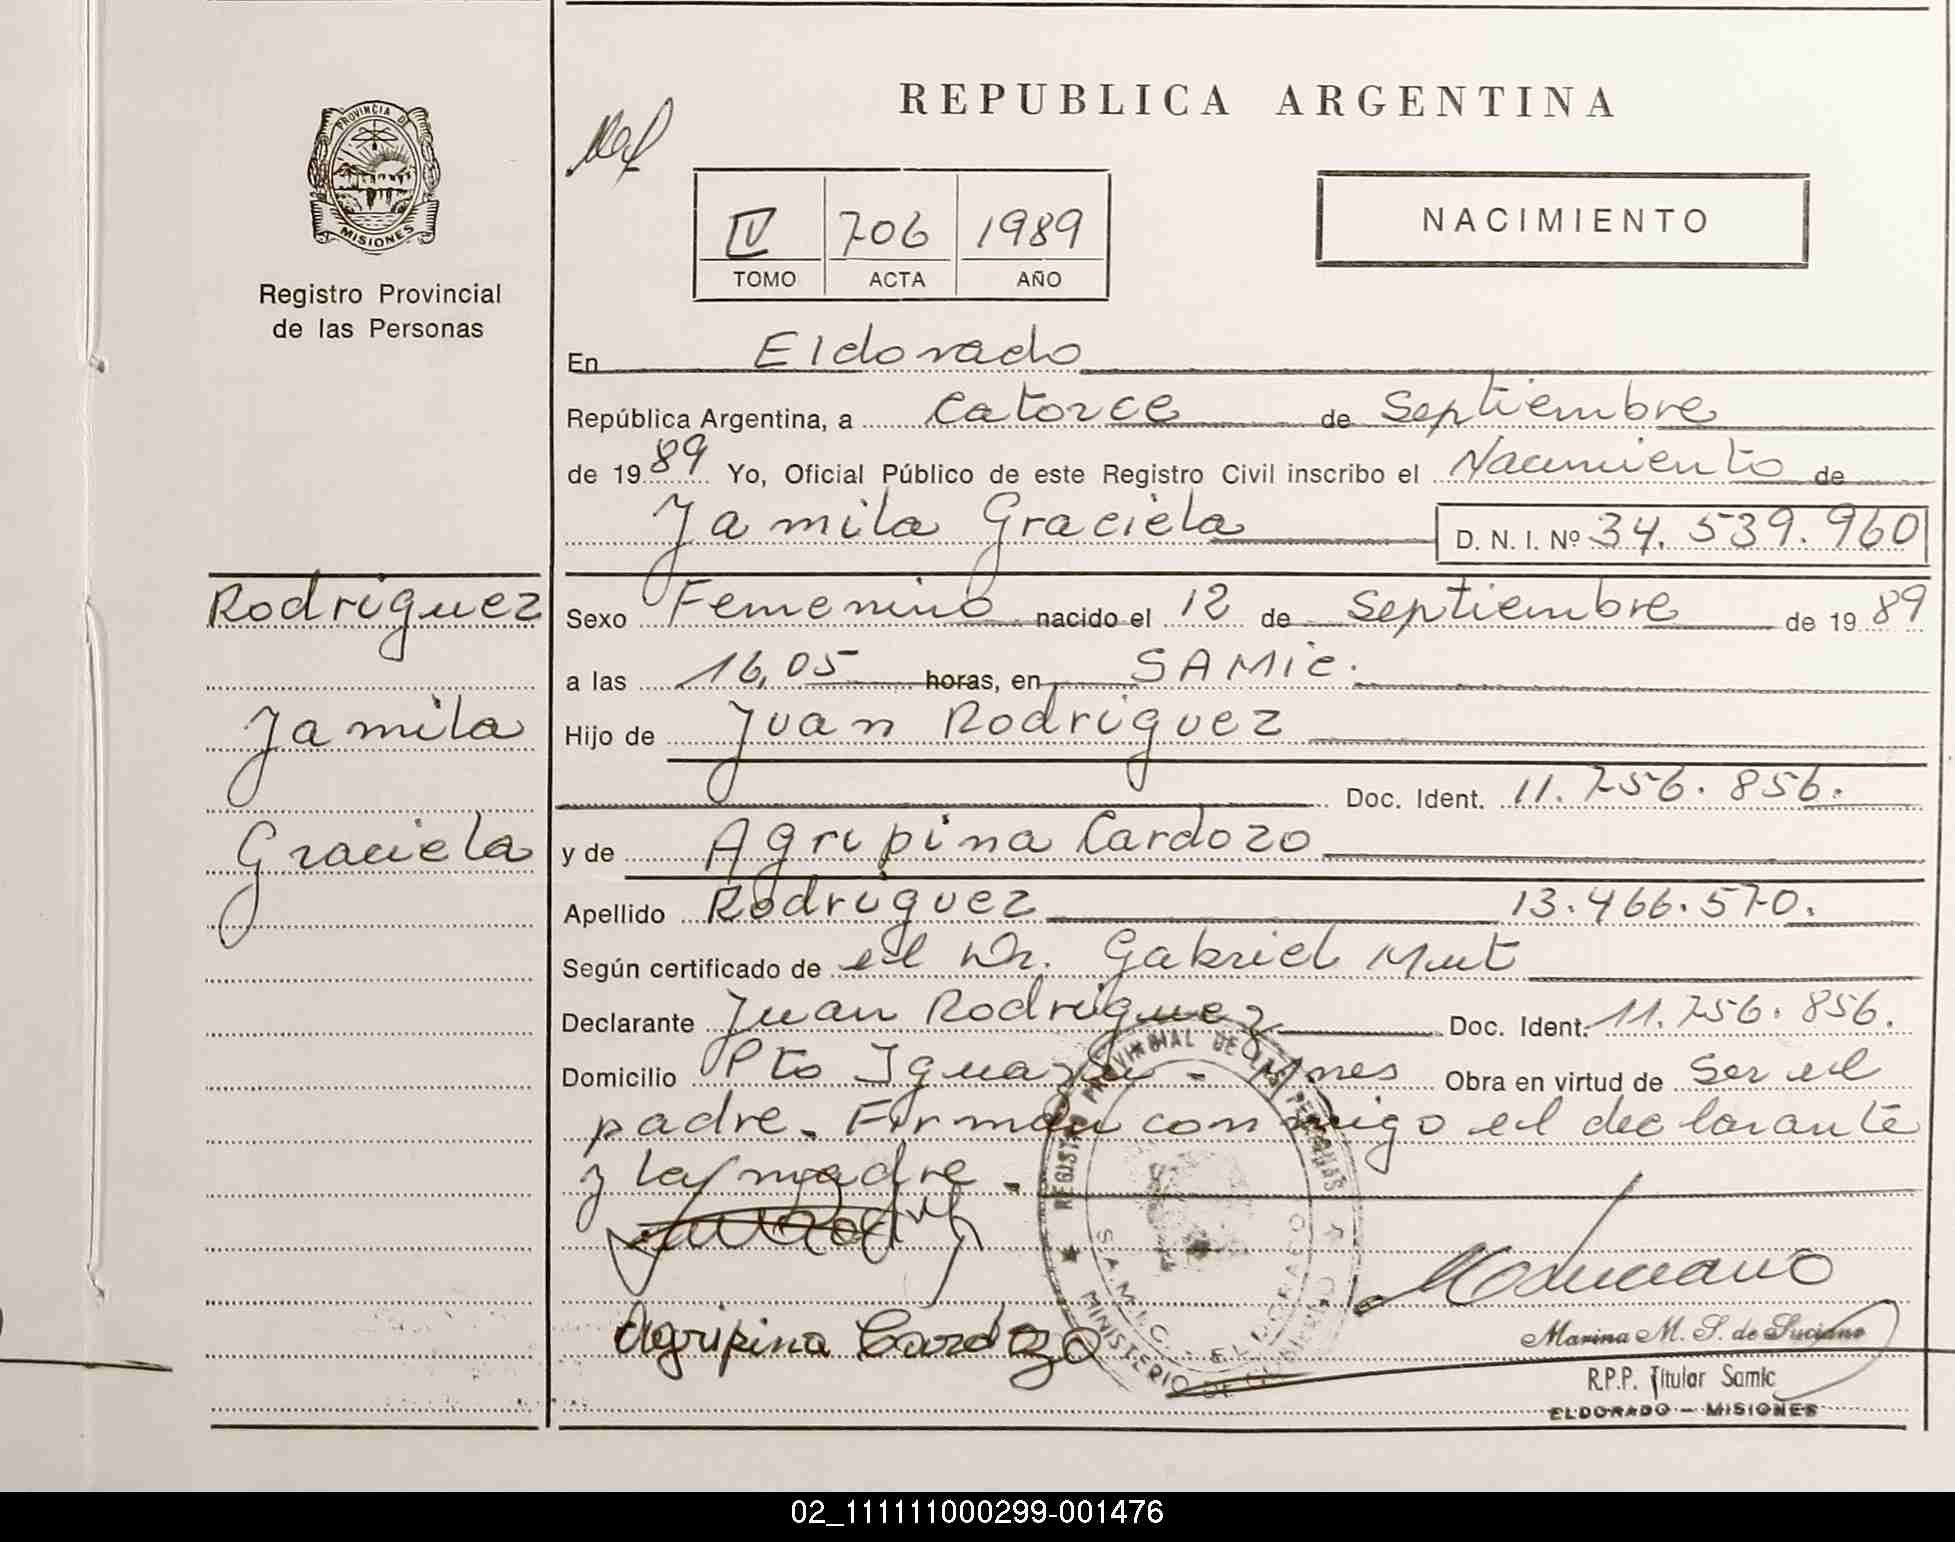 REPUBLICA ARGENTINA
PROVINCIA DE
MISIONES
Registro Provincial
de las Personas
IV 706 1989
TOMO ACTA AÑO
NACIMIENTO
En Eldorado
República Argentina, a catorce de Septiembre
de 1989 Yo, Oficial Público de este Registro Civil inscribo el Nacimiento de
Jamila Graciela D. N. I. Nº 34.539.960
Rodriguez
Jamila
Graciela
Sexo Femenino nacido el 12 de Septiembre de 1989
a las 16,05 horas, en SAMic.
Hijo de Juan Rodriguez
Doc. Ident. 11.756.856.
y de Agripina Cardozo
Apellido Rodriguez 13.466.570.
Según certificado de el Dr. Gabriel Mut
Declarante Juan Rodriguez Doc. Ident. 11.756.856.
Domicilio Pto Iguazu - Mnes Obra en virtud de ser el
padre. Firman conmigo el declarante
y la madre.
Agripina Cardozo
REGISTRO PROVINCIAL DE LAS PERSONAS
S.A.M.I.C. - ELDORADO
MINISTERIO DE GOBIERNO
Marina M. S. de Suciano
R.P.P. Titular Samic
ELDORADO - MISIONES
02_111111000299-001476